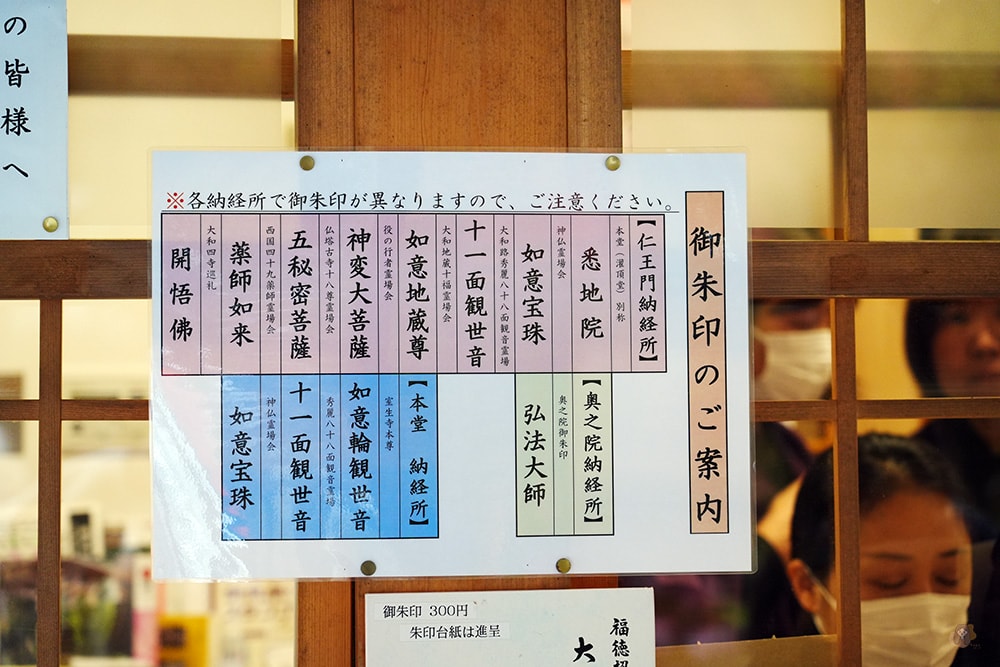 の皆様へ
※各納経所で御朱印が異なりますので、ご注意ください。
御朱印のご案内
【仁王門納経所】
本堂（灌頂堂）別称
悉地院
神仏霊場会
如意宝珠
大和路秀麗八十八面観音霊場
十一面観世音
大和地蔵十福霊場会
如意地蔵尊
役の行者霊場会
神変大菩薩
仏塔古寺十八尊霊場会
五秘密菩薩
西国四十九薬師霊場会
薬師如来
大和四寺巡礼
開悟佛
【奥之院納経所】
奥之院御朱印
弘法大師
【本堂 納経所】
室生寺本尊
如意輪観世音
秀麗八十八面観音霊場
十一面観世音
神仏霊場会
如意宝珠
御朱印 300円
朱印台紙は進呈
福徳
大